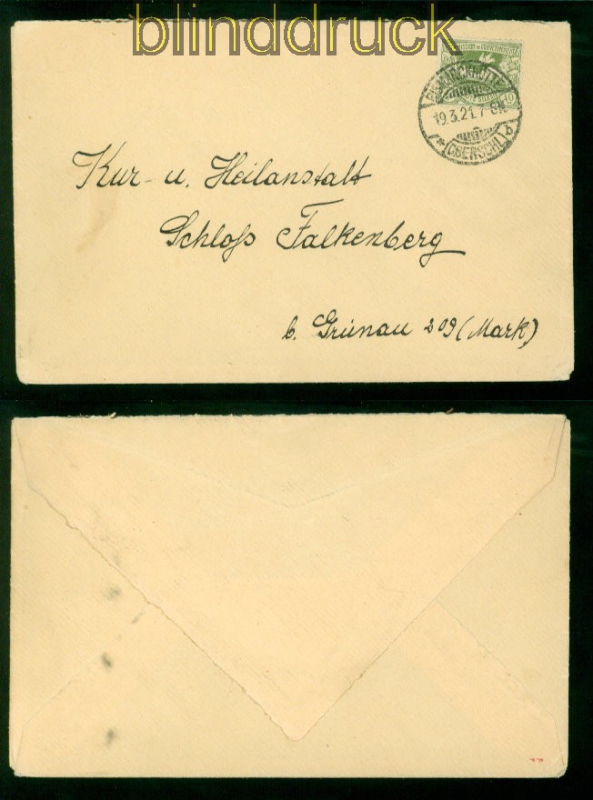 blinddruck
BISMARCKHÜTTE
19.3.21. 7-8N.
*(OBERSCHL.)
Kur- u. Heilanstalt
Schloß Falkenberg
b. Grünau 209 (Mark)